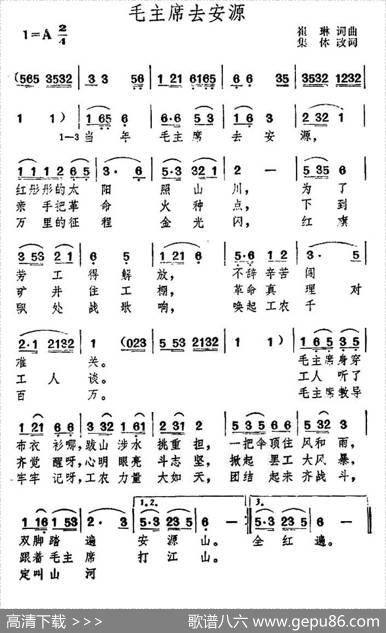 毛主席去安源
1=A 2/4
崔 琳 词曲
集 体 改词
(565 3532 3 3 56 1 21 6165 6 6 3532 1232
1 1) 1 65 6 6·6 53 1 6 3 2 32 1
1—3当 年 毛主 席 去 安 源,
1 1 1 2 1 65 3· 6 5·3 231 2 — 5 35 6
红彤彤的太 阳 照 山 川, 为 了
亲 手把革 命 火 种 点, 下 到
万 里的征 程 金 光 闪, 红 旗
3 53 2 1 6 1 2 3 5·6 1 2 3· 5
劳 工 得 解 放, 不辞 辛苦 闹
矿 井 住 工 棚, 革命 真 理 对
飘 处 战 歌 响, 唤起 工农 千
2·1 2132 1 (023 5 53 2132 1 1) 1 35 5 3
准 关。 毛主 席 身穿
工 人 谈。 工人 听 了
百 万。 毛主 席 教导
布衣 衫哪,跋山 涉水 挑重 担, 一把伞 顶住 风和 雨,
齐觉 醒呀,心明 眼亮 斗志 坚, 掀起 罢工 大风 暴,
牢牢 记呀,工农 力量 大如 天, 团结 起来 齐战 斗,
1 16 1 53 2· 3 5·3 23 5 6 — 5·3 23 5 6 —
1.2. 3.
双脚 踏 遍 安 源 山。 全 红 遍。
跟着 毛主 席 打 江 山。
定叫 山 河
高清下载 >>>
歌谱八六 www.gepu86.com